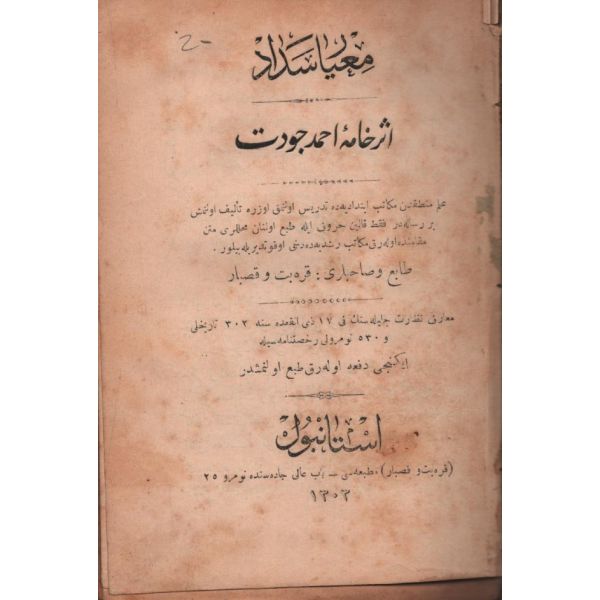 معيار سداد
اثر خامهٔ احمد جودت
علم منطقدن مكاتب ابتدائیه‌ده تدريس اولنمق اوزره تأليف اولنمش
بر رساله‌در فقط قالين حروف ايله طبع اولنان محللری متن
مقامنده اوله‌رق مكاتب رشديه‌ده دخی اوقوتديريله‌بيلور .
طابع و صاحبلری : قره‌بت و قصبار
معارف نظارت جليله‌سنك فی ١٧ ذی القعده سنه ٣٠٢ تاريخلی
و ٥٣٠ نومرولی رخصتنامه‌سيله
ايكنجی دفعه اوله‌رق طبع اولنمشدر
استانبول
(قره‌بت و قصبار) مطبعه‌سی — باب عالی جاده‌سنده نومرو ٢٥
١٣٠٣